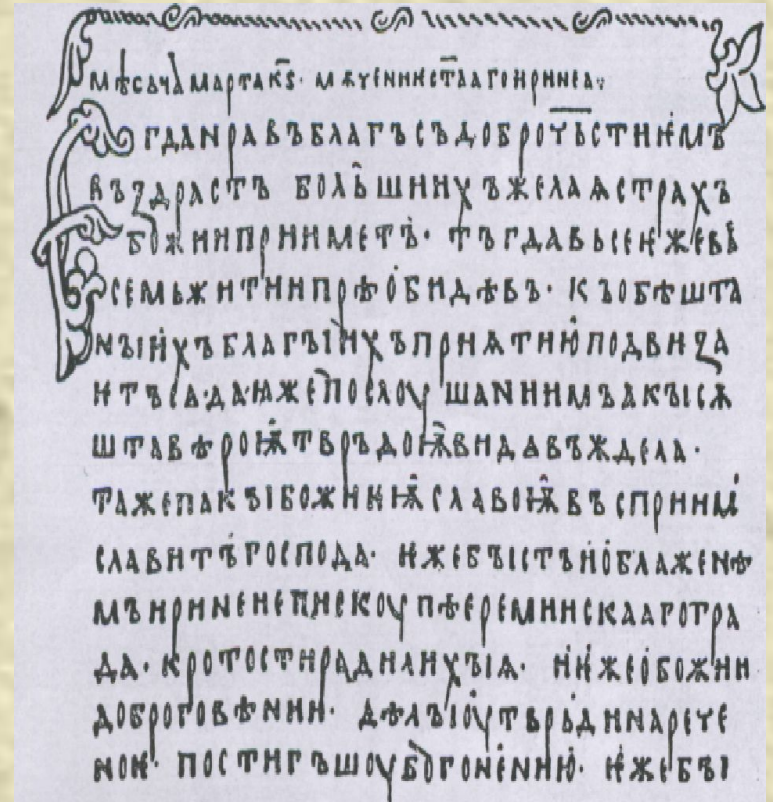 мѣсѧца марта к҃ѕ· мѫчениѥ ст҃ааго иринеа·
Ѥгда нравъ благъ съ доброчьстнꙑимъ
въздрастъ больших ъ желаѧ страхъ
божии прииметъ· тъгда вьсе ѥже вь
семь житии прѣобидѣвъ· къ обѣшта
нꙑихъ благꙑихъ приѩтию подвиза
ѥтъ сѧ· да ꙗже послоушаниимъ акꙑ сѫ
шта вѣроѭ тврьдоѭ видавъ ждела·
таже пакꙑ божиѥѭ славоѭ въсприимъ
славитъ господа· ѥже бꙑстъ и о блаженѣ
мъ иринеи епискоупѣ ереминскааго гра
да· кротости ради лихꙑѧ· и ѥже о божии
доброговѣнии· дѣлꙑ оутврьди нарече
ноѥ· постигъшоу бо гонению· ѥже бꙑ